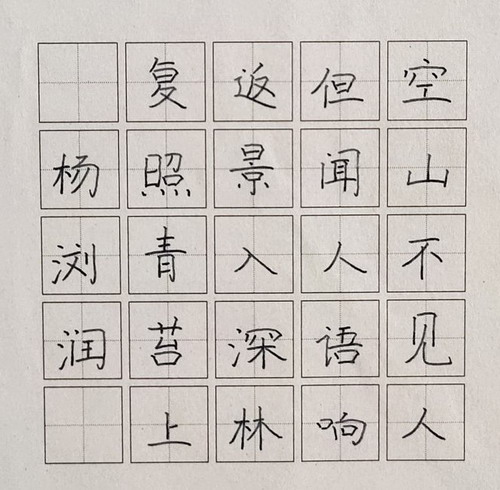 空山不见人
但闻人语响
返景入深林
复照青苔上
杨浏润